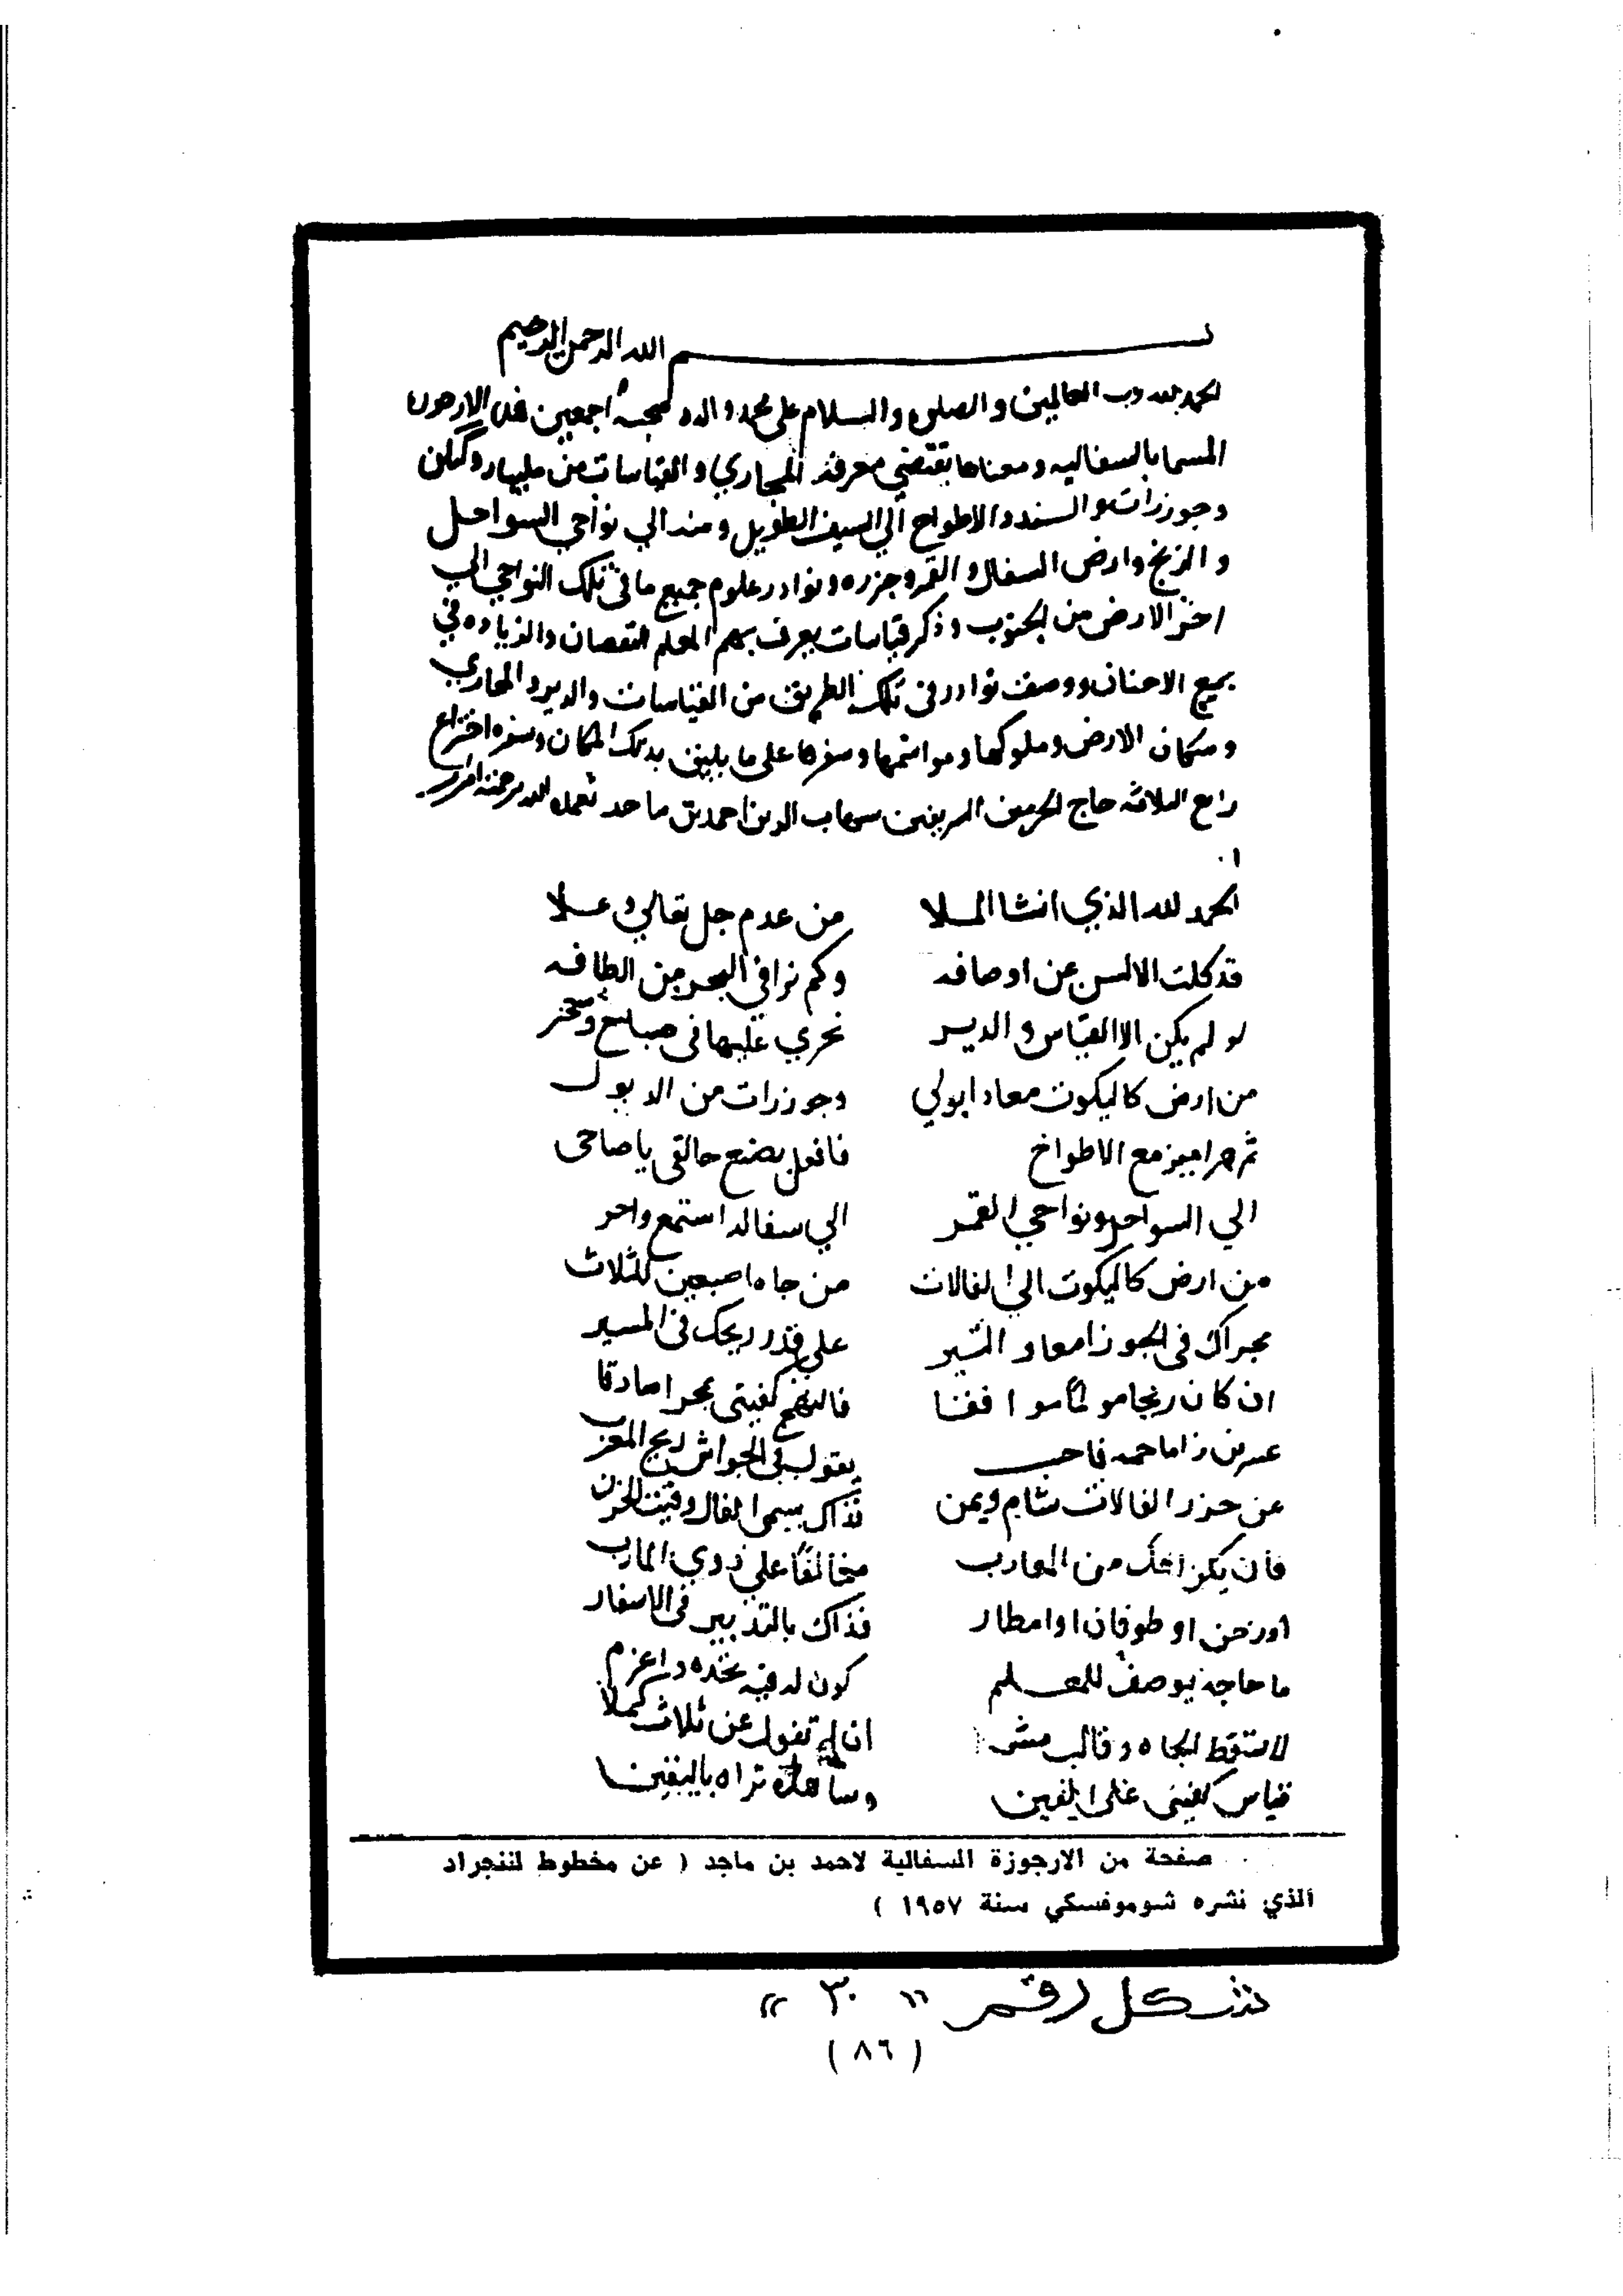 بسم الله الرحمن الرحيم
الحمد لله رب العالمين والصلوه والسلام على محمد واله وصحبه اجمعين هذه الارجوزة
المسما بالسفاليه ومعناها يقتضي معرفة المجاري والقياسات من مليبار وكنكن
وجوزرات والسند والاطواح الي السيف الطويل ومنه الي نواحي السواحل
والزنج وارض السفال والقمر وجزره ونوادر علوم جميع ما في تلك النواحي الي
اخر الارض من الجنوب وذكر قياسات يعرف بهم المعلم النقصان والزياده في
جميع الاخنان ووصف نوادر في تلك الطريق من القياسات والديره والمجاري
وسكان الارض وملوكها ومواسمها وسفرها على ما يليق بذلك المكان وسفره اختراع
رابع الثلاثه حاج الحرمين الشريفين شهاب الدين احمد بن ماجد تغمده الله برحمته
الحمد لله الذي انشا الملا من عدم جل تعالي وعلا
قد كلت الالسن عن اوصافه وكم نرا في البحر من الطافه
لو لم يكن الا القياس والدير نجري عليها في صباح وسحر
من ارض كاليكوت معا دابولي وجوزرات من الديول
ثم هراميز مع الاطواخ فافعل بصنع حالتي يا صاحى
الي السواحل ونواحي القمر الي سفاله استمع وا
من ارض كاليكوت الي الفالات من جاه اصبعين للثلاث
مجراك في الجوزا معا والتير علي قدر ريحك في المسير
ان كان ريحا مو موافقا فالنهج كفيتى مجرا صادقا
عبرين فاحب يقول في الجواش ريح المغرب
عن جزر الفالات شام ويمن فذاك يسمى الفال وقيت الحزن
فان يكن اتتك من المعارب مخالفا علي ذوي المارب
او زحن او طوفان او امطار فذاك بالتدبير في الاسفار
ما حاجة يوصف للمعلم كون له فيه واعزم
لا تسقط الجاه وقالب ان لم تقول عن ثلاث كملا
قياس كفيتى على ايلفين وساهده تراه باليقين
صفحة من الارجوزة السفالية لاحمد بن ماجد ( عن مخطوط لننجراد
الذي نشره شوموفسكي سنة ١٩٥٧ )
شكل رقم " ٣٠ "
( ٨٦ )